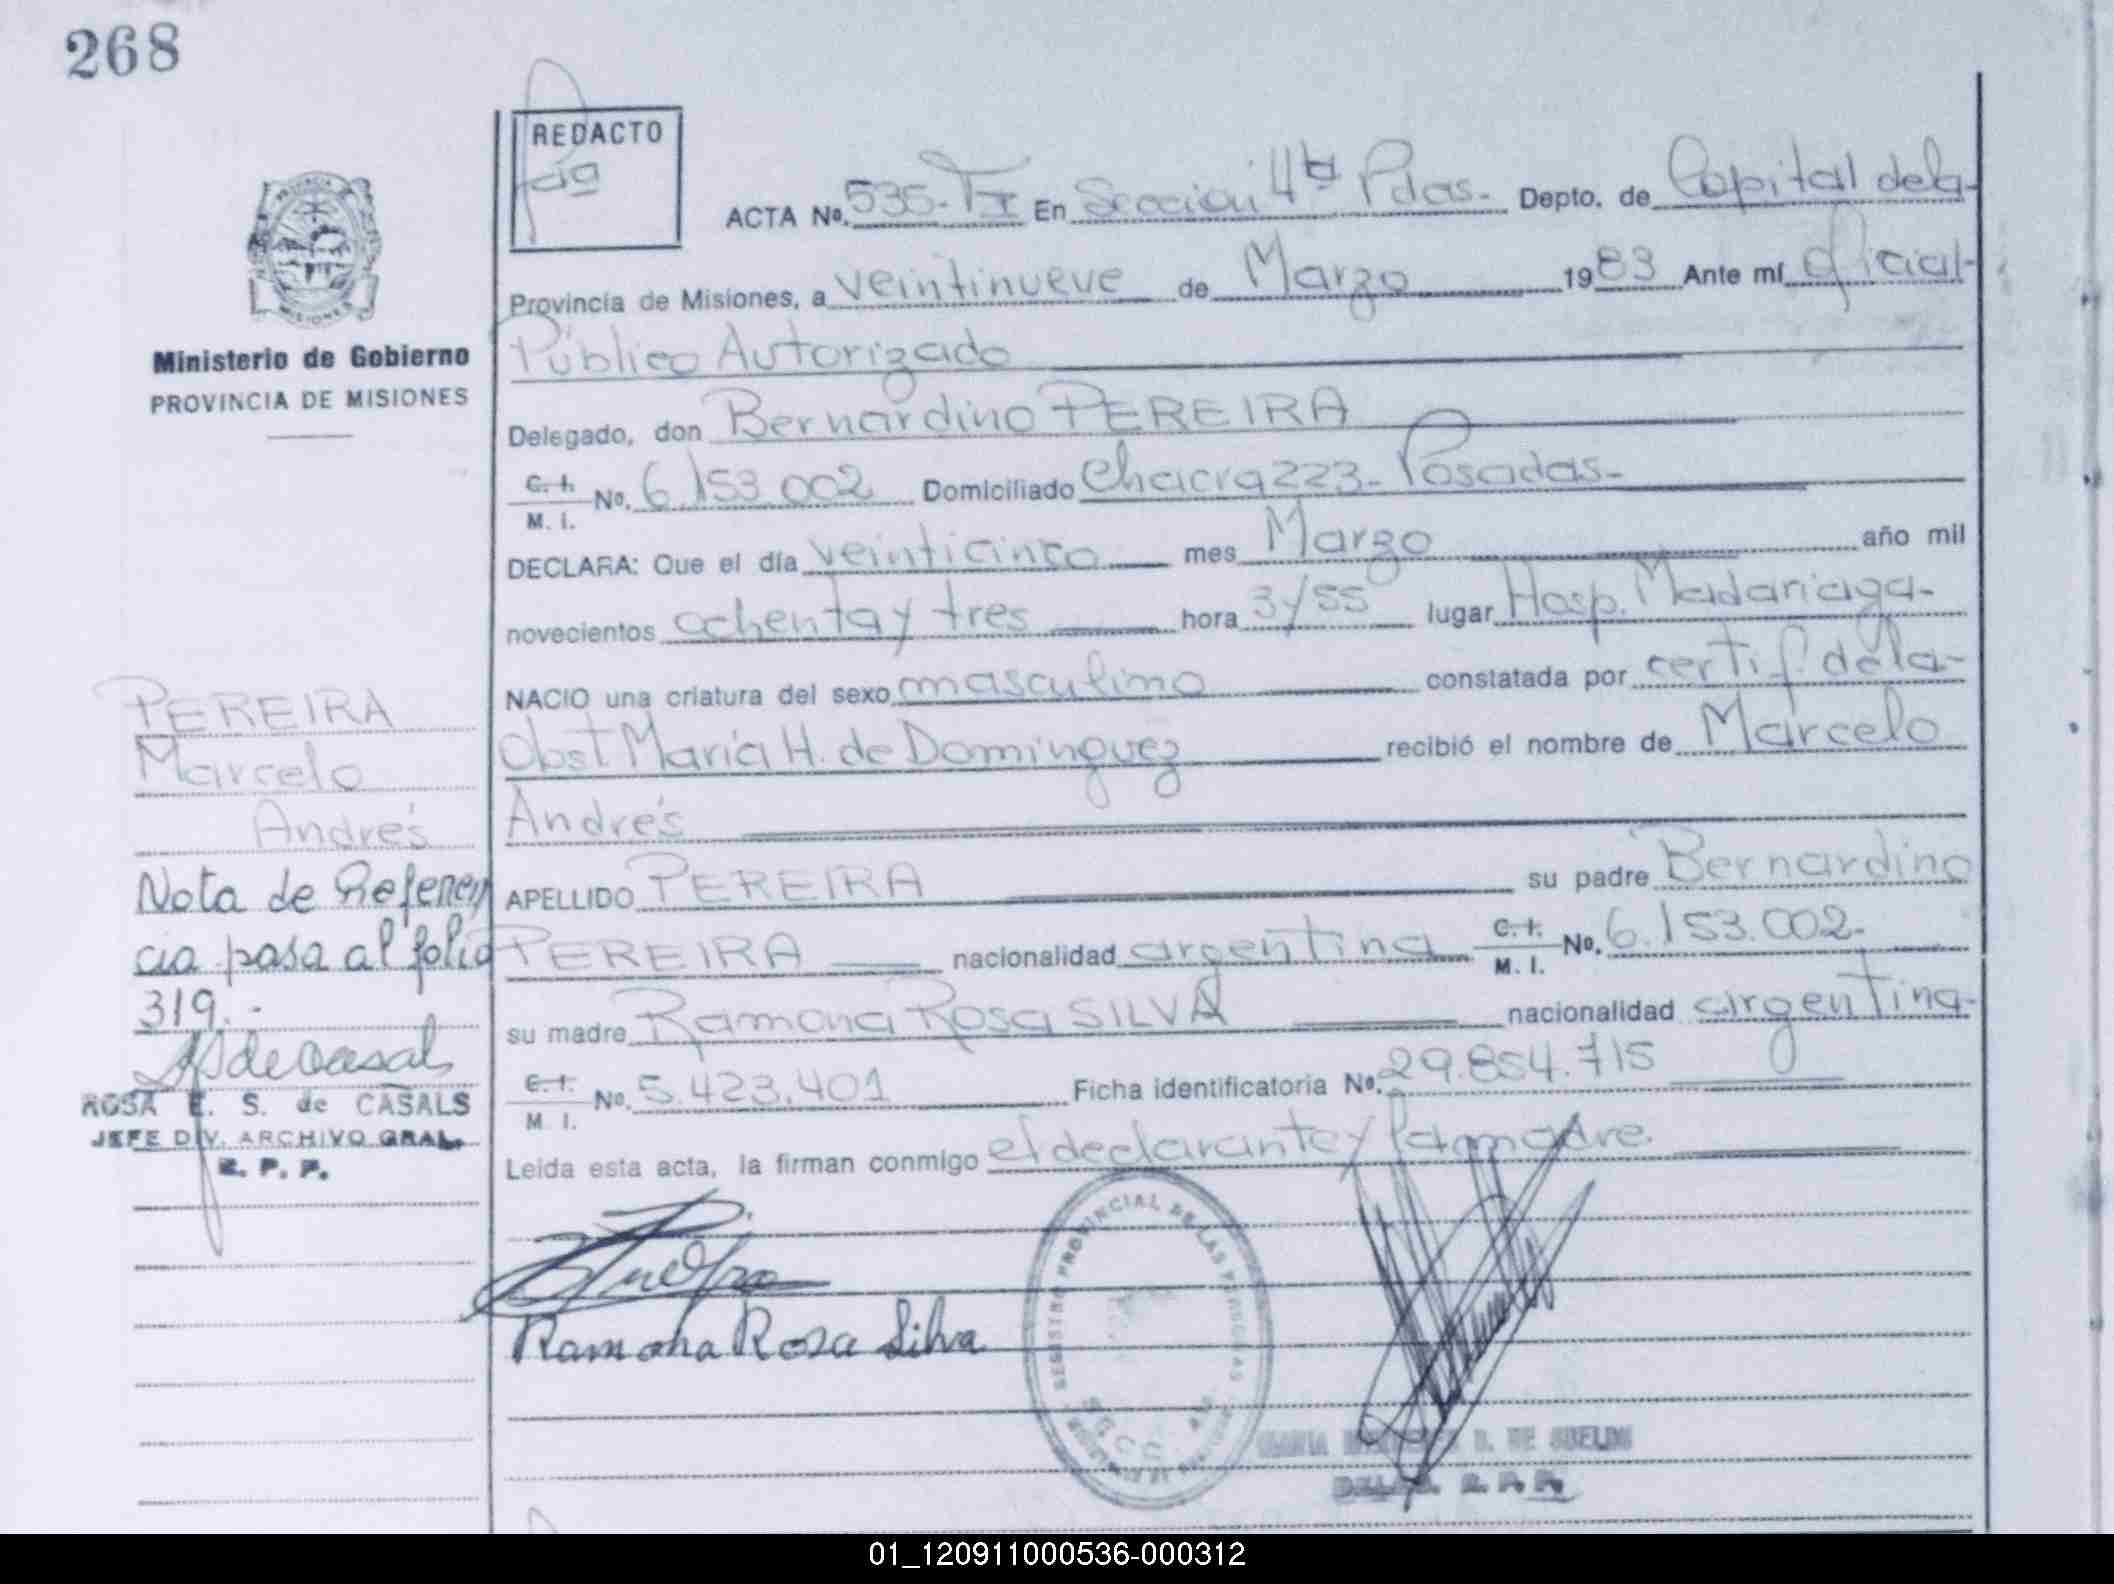 268
REDACTO
ACTA Nº. 535-TI En Sección 4ta Pdas.- Depto. de Capital de la-
Provincia de Misiones, a veintinueve de Marzo 1983 Ante mí oficial-
Público Autorizado
Ministerio de Gobierno
PROVINCIA DE MISIONES
Delegado, don Bernardino PEREIRA
C.I. M.I. No. 6.153.002 Domiciliado Chacra 223- Posadas-
DECLARA: Que el día veinticinco mes Marzo año mil
novecientos ochenta y tres hora 3/55 lugar Hosp. Madariaga-
NACIO una criatura del sexo masculino constatada por certif. de la-
Obst María H. de Dominguez recibió el nombre de Marcelo
Andrés
APELLIDO PEREIRA su padre Bernardino
PEREIRA nacionalidad argentina C.I. M.I. No. 6.153.002-
su madre Ramona Rosa SILVA nacionalidad argentina-
C.I. M.I. No. 5.423.401 Ficha identificatoria No. 29.854.715
Leida esta acta, la firman conmigo el declarante y la madre.
Ramona Rosa Silva
PEREIRA
Marcelo
Andrés
Nota de Referen
cia pasa al folio
319.-
ROSA E. S. de CASALS
JEFE DIV. ARCHIVO GRAL.
R. P. P.
REGISTRO PROVINCIAL DE LAS PERSONAS
DE SUELDO
R. P. P.
01_120911000536-000312